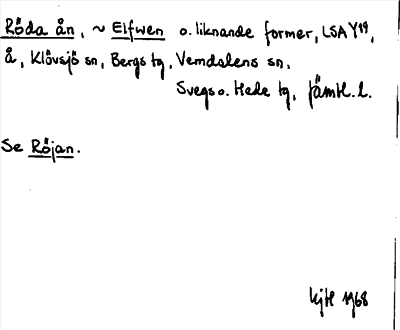 Röda ån, ~ Elfwen o. liknande former, LSA Y19,
å, Klövsjö sn, Bergs tg, Vemdalens sn,
Svegs o. Hede tg, Jämtl. l.
Se Röjan.
KjH 1968